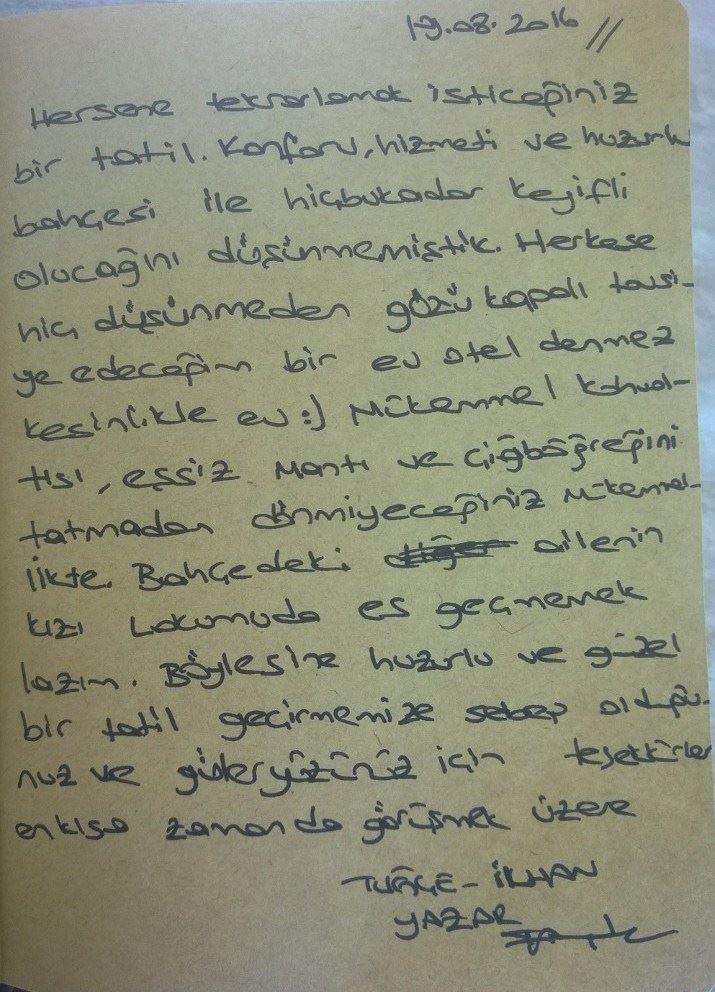 19.08.2016 //
Hersene tekrarlamak isticeğiniz
bir tatil. Konforu, hizmeti ve huzurlu
bahçesi ile hiçbukadar keyifli
olucağını düşünmemiştik. Herkese
hiç düşünmeden gözü kapalı tavsi-
ye edeceğim bir ev otel denmez
kesinlikle ev :) Mükemmel kahval-
tısı, eşsiz Mantı ve çiğböğreğini
tatmadan dönmiyeceğiniz mükemmel-
likte. Bahçedeki ailenin
kızı Lokumuda es geçmemek
lazım. Böylesine huzurlu ve güzel
bir tatil geçirmemize sebep olduğu-
nuz ve güleryüzünüz için teşekkürler
enkısa zamanda görüşmek üzere
TUĞÇE - İLHAN
YAZAR